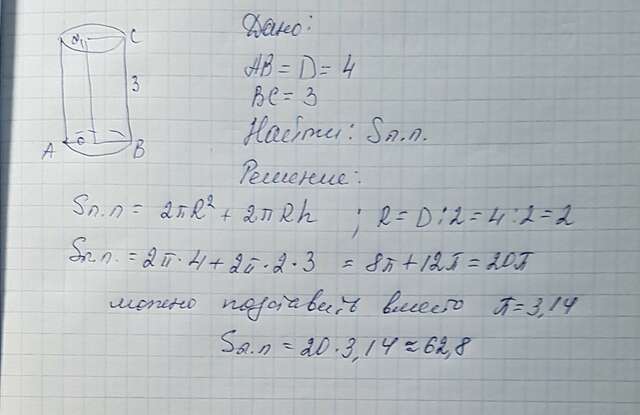 Дано:
O₁ C
AB = D = 4
3
BC = 3
Найти: Sп.п.
A O B
Решение:
Sп.п = 2πR² + 2πRh ; R = D:2 = 4:2 = 2
Sп.п. = 2π·4 + 2π·2·3 = 8π + 12π = 20π
можно подставить вместо π = 3,14
Sп.п = 20·3,14 ≈ 62,8